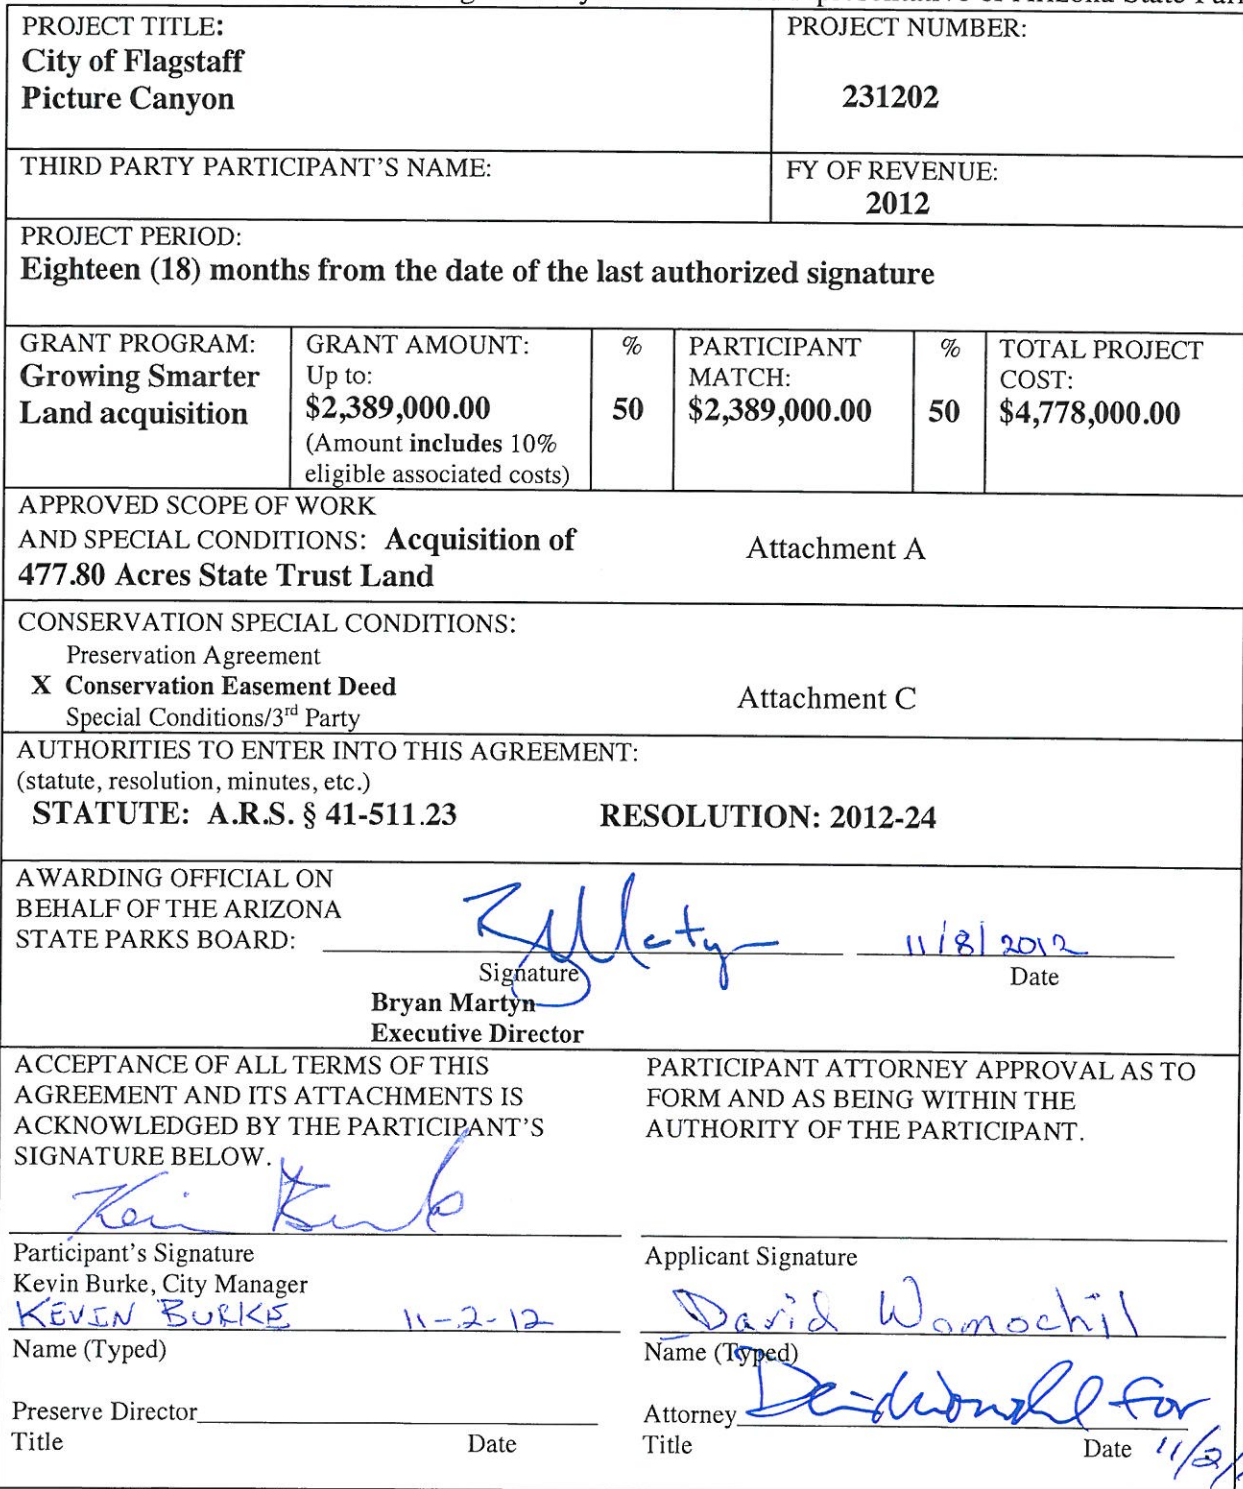 PROJECT TITLE:
City of Flagstaff
Picture Canyon
PROJECT NUMBER:
231202
THIRD PARTY PARTICIPANT'S NAME:
FY OF REVENUE:
2012
PROJECT PERIOD:
Eighteen (18) months from the date of the last authorized signature
GRANT PROGRAM:
Growing Smarter
Land acquisition
GRANT AMOUNT:
Up to:
$2,389,000.00
(Amount includes 10%
eligible associated costs)
%
50
PARTICIPANT
MATCH:
$2,389,000.00
%
50
TOTAL PROJECT
COST:
$4,778,000.00
APPROVED SCOPE OF WORK
AND SPECIAL CONDITIONS: Acquisition of
477.80 Acres State Trust Land
Attachment A
CONSERVATION SPECIAL CONDITIONS:
Preservation Agreement
X Conservation Easement Deed
Special Conditions/3rd Party
Attachment C
AUTHORITIES TO ENTER INTO THIS AGREEMENT:
(statute, resolution, minutes, etc.)
STATUTE: A.R.S. § 41-511.23 RESOLUTION: 2012-24
AWARDING OFFICIAL ON
BEHALF OF THE ARIZONA
STATE PARKS BOARD:
11/8/2012
Signature
Date
Bryan Martyn
Executive Director
ACCEPTANCE OF ALL TERMS OF THIS
AGREEMENT AND ITS ATTACHMENTS IS
ACKNOWLEDGED BY THE PARTICIPANT'S
SIGNATURE BELOW.
Kevin Burke
Participant's Signature
Kevin Burke, City Manager
KEVIN BURKE 11-2-12
Name (Typed)
Preserve Director
Title Date
PARTICIPANT ATTORNEY APPROVAL AS TO
FORM AND AS BEING WITHIN THE
AUTHORITY OF THE PARTICIPANT.
Applicant Signature
David Womochil
Name (Typed)
Attorney David Womochil for
Title Date 11/2/